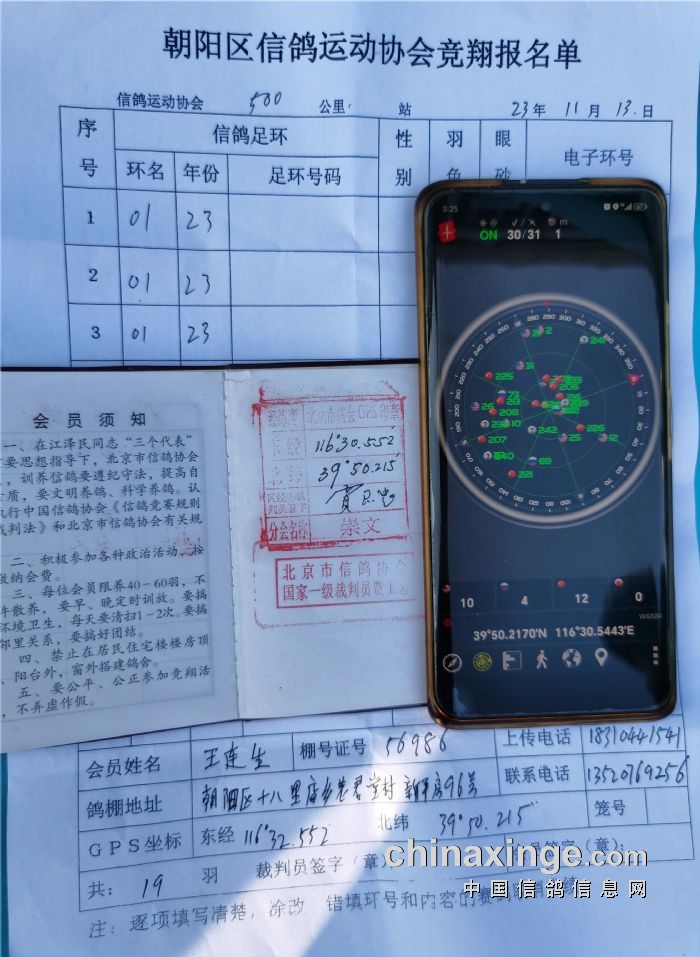 朝阳区信鸽运动协会竞翔报名单
信鸽运动协会 500 公里 站 23年 11月 13.日
序号 信鸽足环 性别 羽 眼 电子环号
环名 年份 足环号码
1 01 23
2 01 23
3 01 23
会员须知
一、在江泽民同志“三个代表”
要思想指导下，北京市信鸽协会
，训养信鸽要遵纪守法，提高自
质，要文明养鸽、科学养鸽。认
执行中国信鸽协会《信鸽竞赛规则
裁判法》和北京市信鸽协会有关规
二、积极参加各种政治活动，按
缴纳会费。
三、每位会员限养40-60羽，不
许散养，要早、晚定时训放。要搞
环境卫生，每天要清扫1-2次。要搞
邻里关系，要搞好团结。
四、禁止在居民住宅楼楼房顶
、阳台外，窗外搭建鸽舍。
五、要公平、公正参加竞翔活
，不弄虚作假。
北京市信鸽会GPS印章
东经 116°30.552′
北纬 39°50.215′
分会名称 崇文
北京市信鸽协会
国家一级裁判员费
3:25
ON 30/31 1
m
10 4 12 0
WGS84
39°50.2170'N 116°30.5443'E
会员姓名 王连生 棚号证号 56986 上传电话 18310441541
鸽棚地址 朝阳区十八里店乡老君堂村新平房96号 联系电话 13520769256
GPS坐标 东经 116°32.552′ 北纬 39°50.215′ 笼号
共： 19 羽 裁判员签字（章） 员签字（章）：
chinaxinge.com
中国信鸽信息网
注：逐项填写清楚，涂改、错填环号和内容的赛